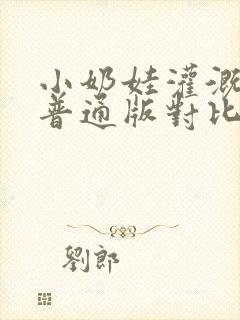 小奶娃灌溉
普通版對比
劉郎